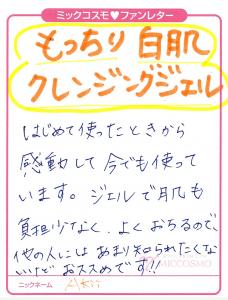 ミックコスモ♥ファンレター
もっちり 白肌
クレンジングジェル
はじめて使ったときから
感動して今でも使って
います。ジェルで肌も
負担少なく、よくおちるので、
他の人にはあまり知られたくな
いけどおススメです!!
MICCOSMO
ニックネーム